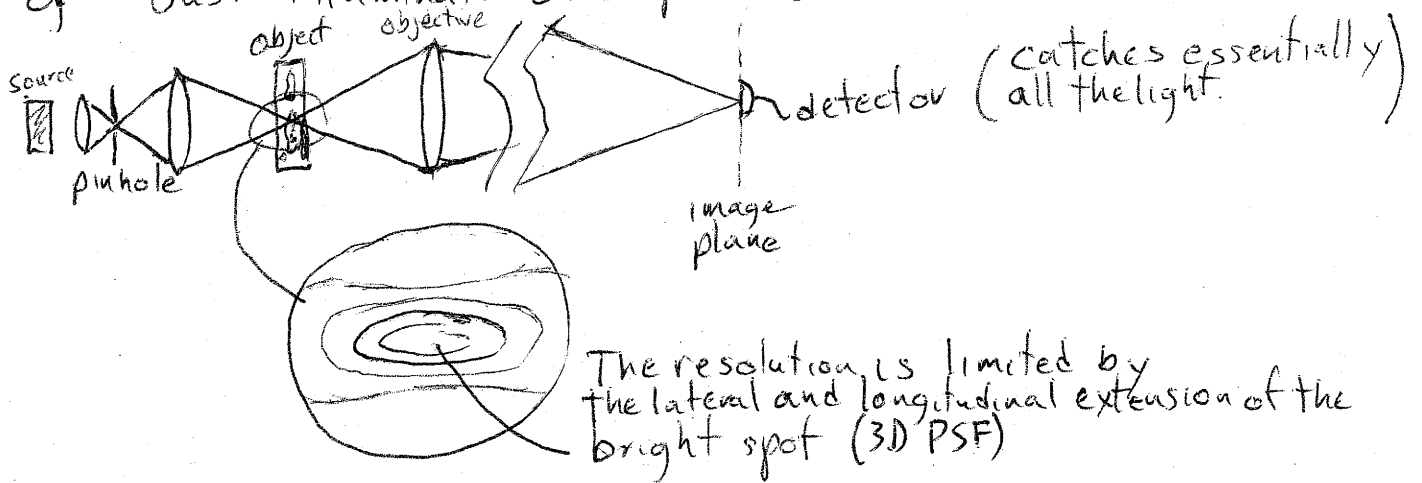 objective
object
source
pinhole
detector (catches essentially
all the light.)
image
plane
The resolution is limited by
the lateral and longitudinal extension of the
bright spot (3D PSF)